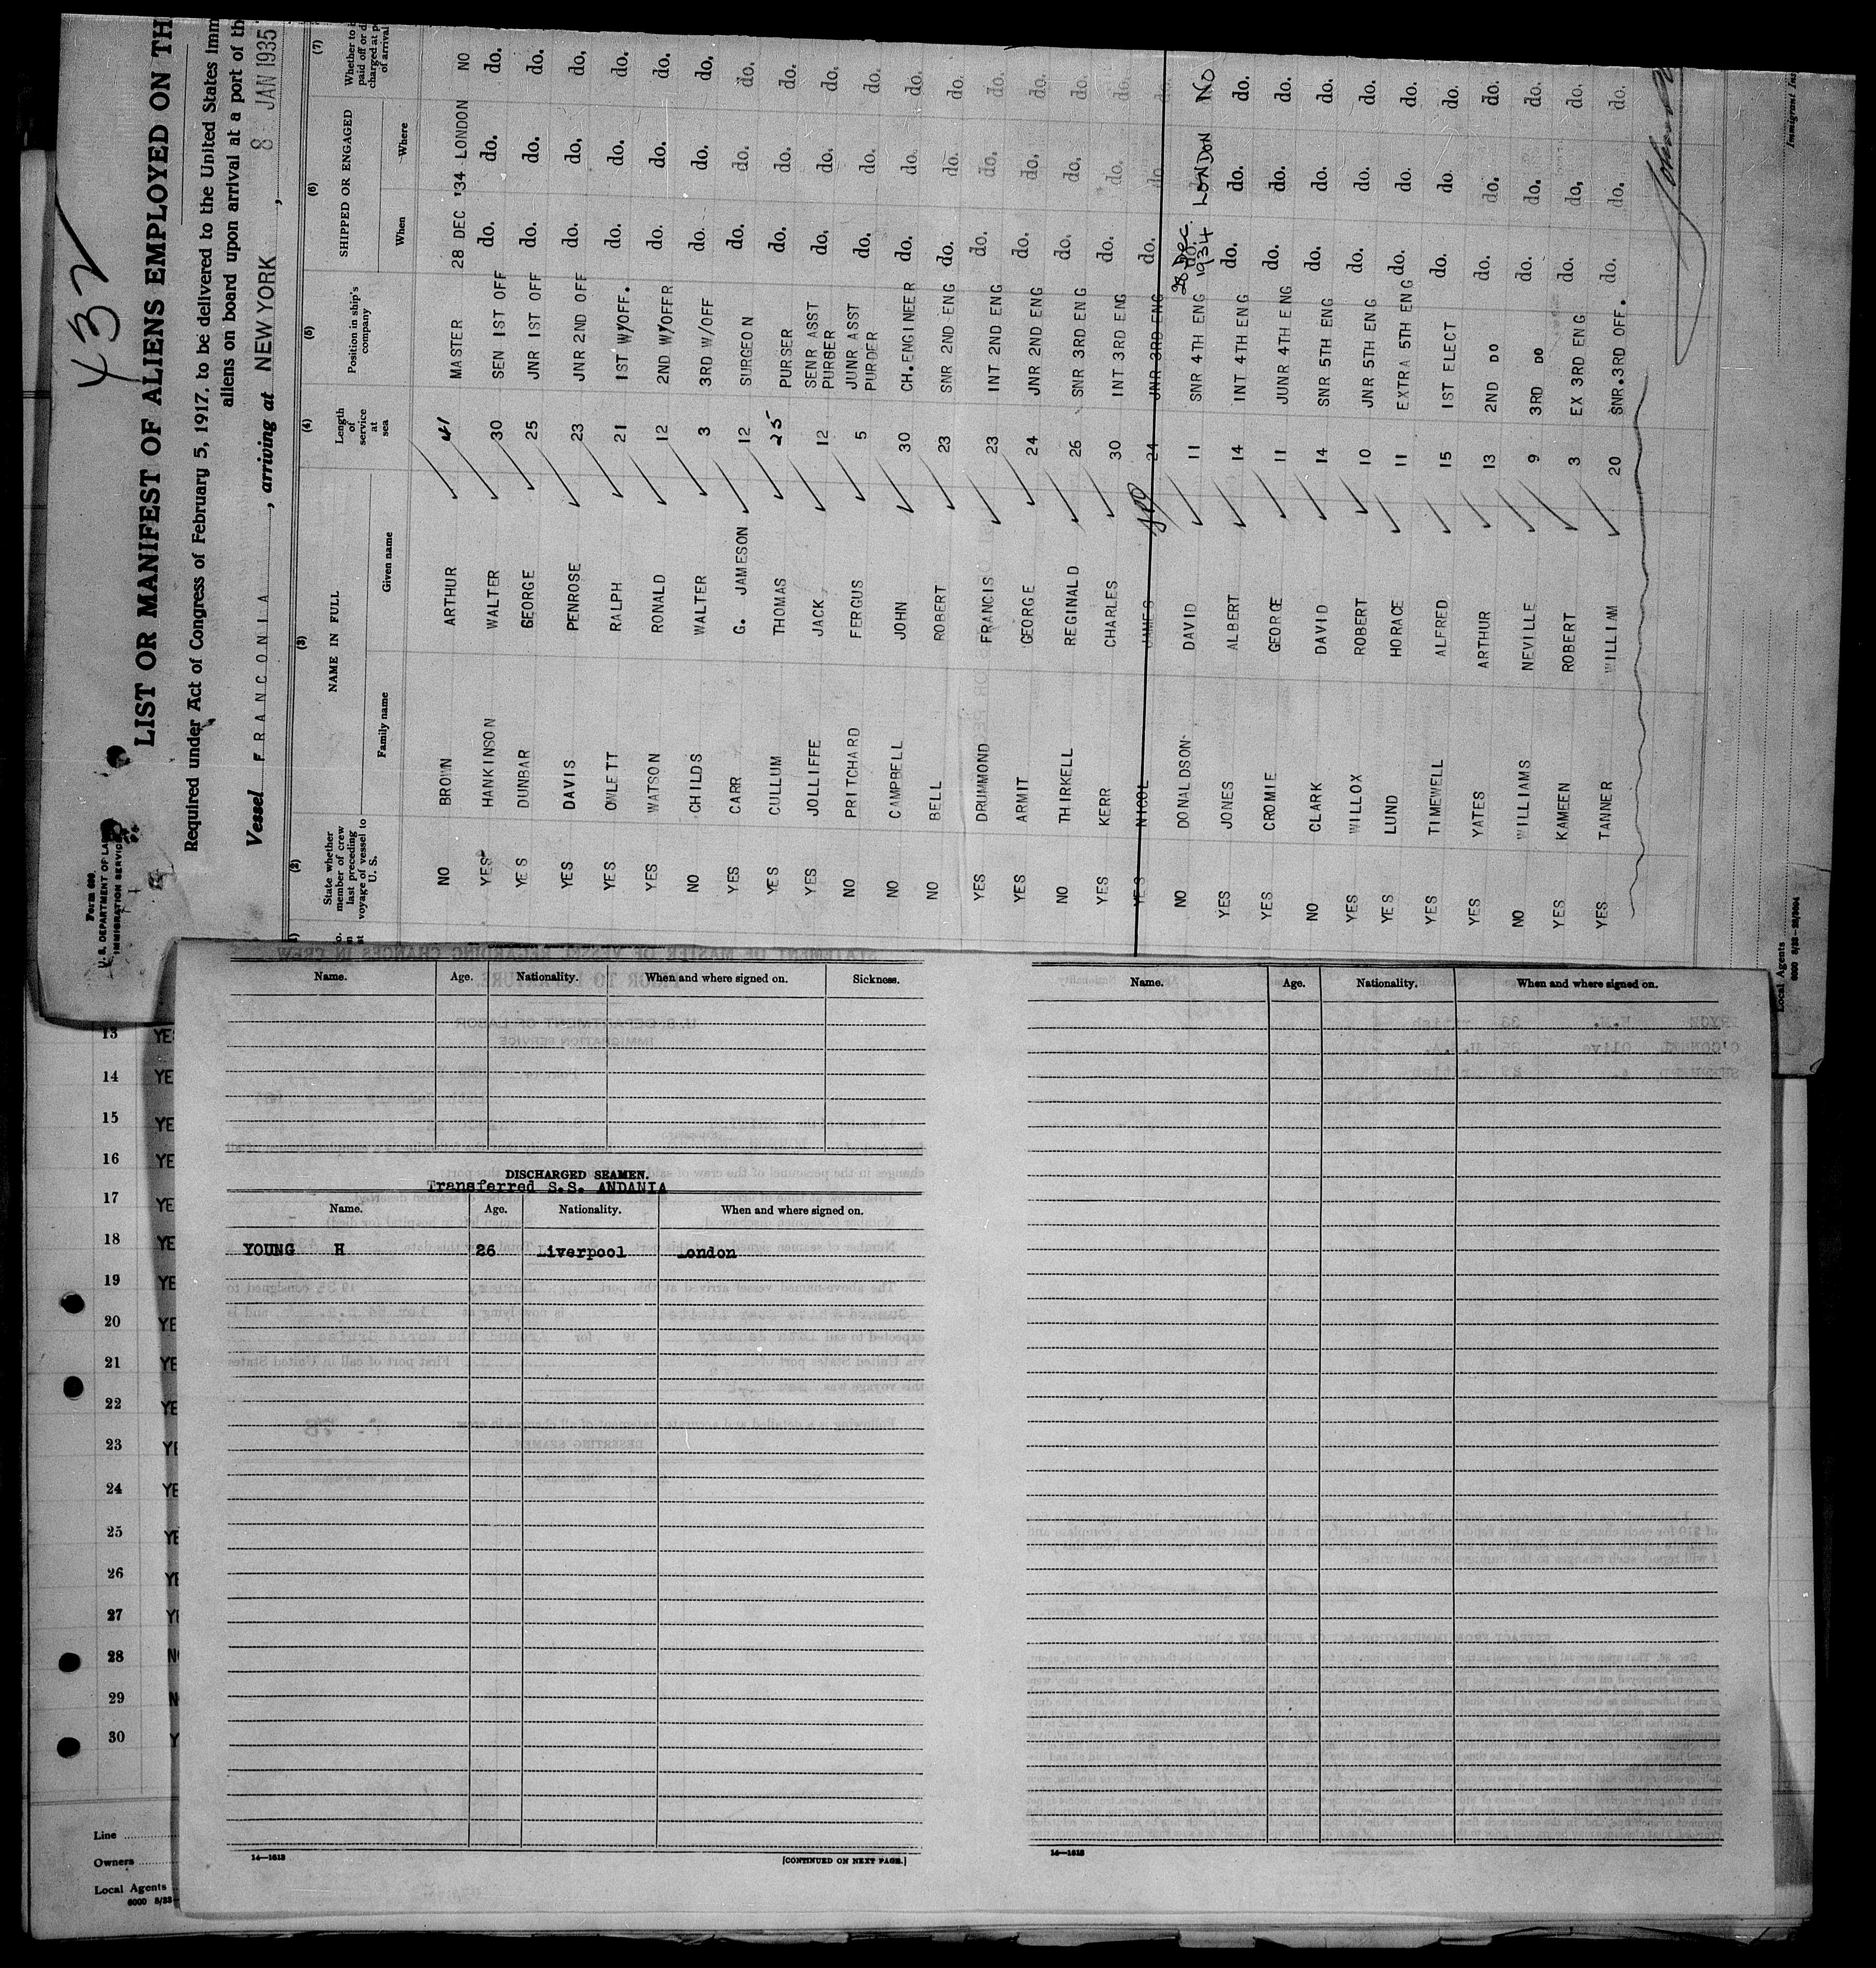 432
Form 689
U. S. DEPARTMENT OF LA
IMMIGRATION SERVIC
LIST OR MANIFEST OF ALIENS EMPLOYED ON TH
Required under Act of Congress of February 5, 1917, to be delivered to the United States imm
aliens on board upon arrival at a port of th
Vessel FRANCONIA, arriving at NEW YORK, 8 JAN 1935
(2) (3) (4) (5) (6) (7)
State whether member of crew last preceding voyage of vessel to U. S.
NAME IN FULL
Family name Given name
Length of service at sea
Position in ship's company
SHIPPED OR ENGAGED
When Where
Whether to paid off or d charged at p of arrival
NO BROWN ARTHUR 41 MASTER 28 DEC '34 LONDON NO
YES HANKINSON WALTER 30 SEN 1ST OFF do. do. do.
YES DUNBAR GEORGE 25 JNR 1ST OFF do. do. do.
YES DAVIS PENROSE 23 JNR 2ND OFF do. do. do.
YES OWLETT RALPH 21 1ST W/OFF. do. do. do.
YES WATSON RONALD 12 2ND W/OFFR do. do. do.
NO CHILDS WALTER 3 3RD W/OFF do. do. do.
YES CARR G. JAMESON 12 SURGEON do. do. do.
YES CULLUM THOMAS 25 PURSER do. do. do.
YES JOLLIFFE JACK 12 SENR ASST PURBER do. do. do.
NO PRITCHARD FERGUS 5 JUNR ASST PURDER do. do. do.
NO CAMPBELL JOHN 30 CH.ENGINEER do. do. do.
NO BELL ROBERT 23 SNR 2ND ENG do. do. do.
YES DRUMMOND FRANCIS 23 INT 2ND ENG do. do. do.
YES ARMIT GEORGE 24 JNR 2ND ENG do. do. do.
NO THIRKELL REGINALD 26 SNR 3RD ENG do. do. do.
YES KERR CHARLES 30 INT 3RD ENG do. do. do.
YES NICOL JAMES 24 JNR 3RD ENG do. do. do.
NO DONALDSON DAVID 11 SNR 4TH ENG 28 Dec. 1934 LONDON No
YES JONES ALBERT 14 INT 4TH ENG do. do. do.
YES CROMIE GEORGE 11 JUNR 4TH ENG do. do. do.
NO CLARK DAVID 14 SNR 5TH ENG do. do. do.
YES WILLOX ROBERT 10 JNR 5TH ENG do. do. do.
YES LUND HORACE 11 EXTRA 5TH ENG do. do. do.
YES TIMEWELL ALFRED 15 1ST ELECT do. do do.
YES YATES ARTHUR 13 2ND DO do. do. do.
NO WILLIAMS NEVILLE 9 3RD DO do. do. do.
YES KAMEEN ROBERT 3 EX 3RD ENG do. do. do.
YES TANNER WILLIAM 20 SNR.3RD OFF. do. do. do.
Local Agents
6000 5/33-
Immigrant Ins
Name. Age. Nationality. When and where signed on. Sickness.
DISCHARGED SEAMEN.
Transferred S.S. ANDANIA
Name. Age. Nationality. When and where signed on.
YOUNG H 26 Liverpool London
14—1613
[CONTINUED ON NEXT PAGE.]
Name. Age. Nationality. When and where signed on.
14—1613
13 YE
14 YE
15 YE
16 YE
17 YE
18 YE
19 YE
20 YE
21 YE
22 YE
23 YE
24 YE
25 YE
26 YE
27 YE
28 NO
29 N
30 Y
Line
Owners
Local Agents
6000 5/33-